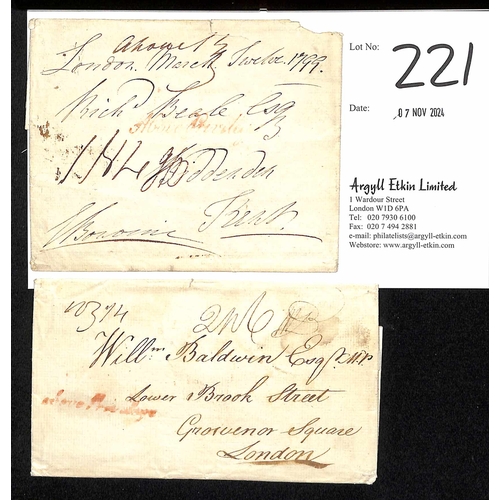 London March Twelve 1799.
Rich^d Beale Esq
Biddenden
Kent
Lot No: 221
Date: 07 NOV 2024
Argyll Etkin Limited
1 Wardour Street
London W1D 6PA
Tel: 020 7930 6100
Fax: 020 7494 2881
e-mail: philatelists@argyll-etkin.com
Webstore: www.argyll-etkin.com
Will^m Baldwin Esq^r MP
Lower Brook Street
Grosvenor Square
London